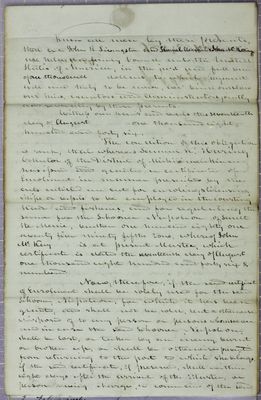 Know all men by these presents,
that we John H. Livingston and
are held and firmly bound unto the United
States of America in the just and full sum
of one thousand dollars, to which payment
well and truly to be made, we bind ourselves
our heirs, executors and administrators, jointly
and severally, by these presents.
Witness our hands and seals this seventeenth
day of August one thousand eight
hundred and forty six.
The condition of this obligation
is such, that whereas the
Collector of the District of Michilimackinac
has given and granted a certificate of
enrolment in manner prescribed by the
acts entitled an act for enrolling & licensing
ships or vessels to be employed in the coasting
trade and fisheries, and for regulating the
same for the Schooner Napoleon of Sault
Ste Marie, burthen one hundred eighty one
and ninety fifths tons, whereof John
McKay is at present Master, which
certificate is dated the seventeenth day of August
one thousand eight hundred and forty six &
numbered
Now, therefore, if the said certificate
of enrolment shall be solely used for the said
Schooner Napoleon, for which it has been
granted and shall not be sold, lent or otherwise
disposed of to any person or persons whomsoever
and in case the said Schooner Napoleon
shall be lost, or taken by an enemy, burnt
or broken up, or shall be otherwise prevented
from returning to the port to which she belongs
if the said certificate, if preserved, shall within
eight days after the arrival of the Master or
person having charge or command of the said